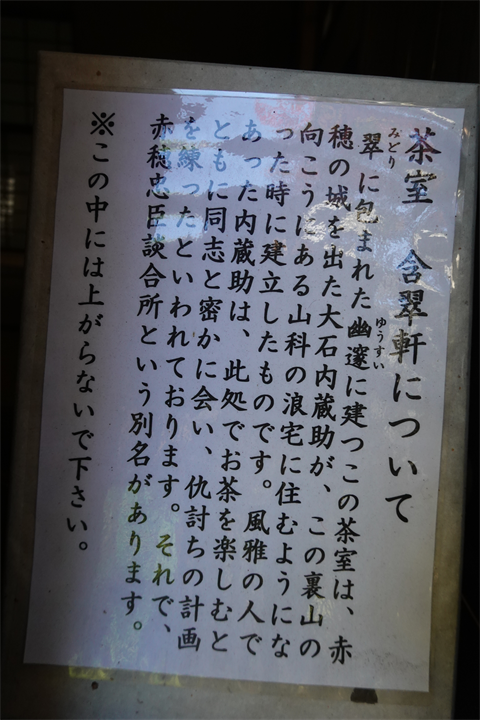 茶室　含翠軒について
翠に包まれた幽邃に建つこの茶室は、赤
みどり
ゆうすい
穂の城を出た大石内蔵助が、この裏山の
向こうにある山科の浪宅に住むようにな
った時に建立したものです。風雅の人で
あった内蔵助は、此処でお茶を楽しむと
ともに同志と密かに会い、仇討ちの計画
を練ったといわれております。それで、
赤穂忠臣談合所という別名があります。
※この中には上がらないで下さい。